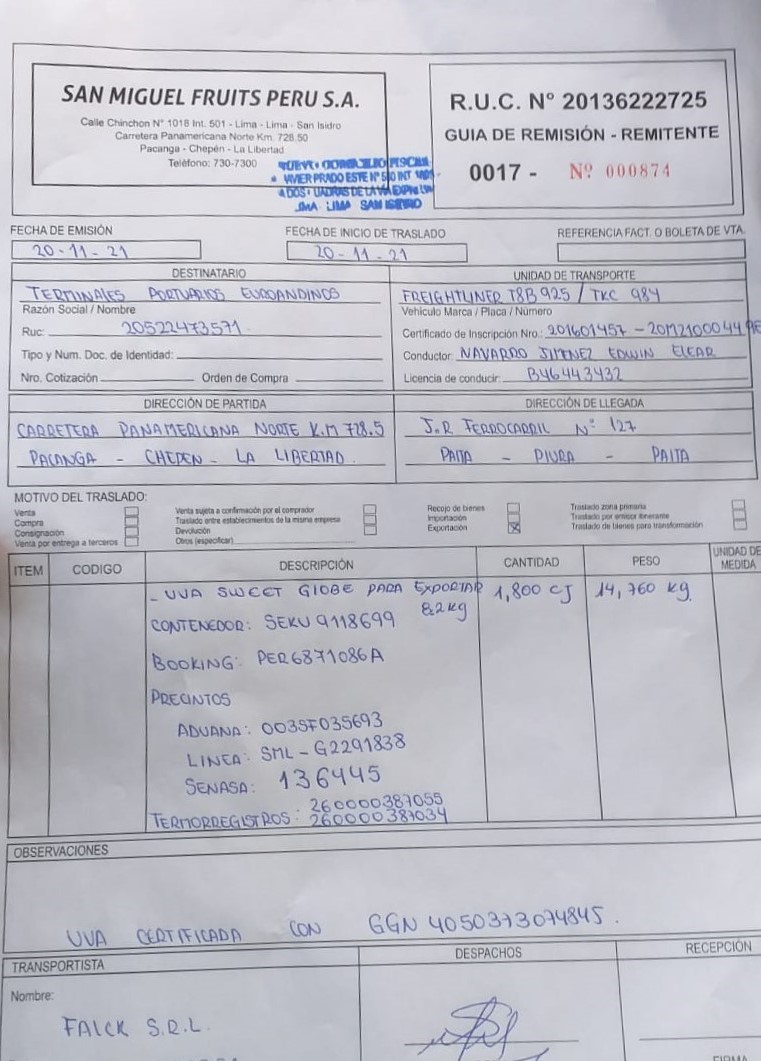 SAN MIGUEL FRUITS PERU S.A.
Calle Chinchon N° 1018 Int. 501 - Lima - Lima - San Isidro
Carretera Panamericana Norte Km. 728.50
Pacanga - Chepén - La Libertad
Teléfono: 730-7300
R.U.C. N° 20136222725
GUIA DE REMISIÓN - REMITENTE
0017 - Nº 000874
FECHA DE EMISIÓN
20-11-21
FECHA DE INICIO DE TRASLADO
20-11-21
REFERENCIA FACT. O BOLETA DE VTA.
DESTINATARIO
TERMINALES PORTUARIOS EUROANDINOS
Razón Social / Nombre
Ruc: 20522473571
Tipo y Num. Doc. de Identidad:
Nro. Cotización Orden de Compra
UNIDAD DE TRANSPORTE
FREIGHTLINER T8B925 / TKC 984
Vehiculo Marca / Placa / Número
Certificado de Inscripción Nro.: 201601457 - 20M2100044
Conductor: NAVARRO JIMENEZ EDWIN ELEAR
Licencia de conducir: B46443432
DIRECCIÓN DE PARTIDA
CARRETERA PANAMERICANA NORTE K.M 728.5
PACANGA - CHEPEN - LA LIBERTAD
DIRECCIÓN DE LLEGADA
J.R FERROCARRIL N° 127
PAITA - PIURA - PAITA
MOTIVO DEL TRASLADO:
Venta
Compra
Consignación
Venta por entrega a terceros
Venta sujeta a confirmación por el comprador
Traslado entre establecimientos de la misma empresa
Devolución
Otros (especificar)
Recojo de bienes
Importación
Exportación
Traslado zona primaria
Traslado por emisor itinerante
Traslado de bienes para transformación
ITEM CODIGO DESCRIPCIÓN CANTIDAD PESO UNIDAD DE MEDIDA
- UVA SWEET GLOBE PARA EXPORTAR 1,800 CJ 14,760 kg.
8,2 kg
CONTENEDOR: SEKU 9118699
BOOKING: PER6871086A
PRECINTOS
ADUANA: 003SF035693
LINEA: SML-G2291838
SENASA: 136445
TERMORREGISTROS: 260000387055
260000387034
OBSERVACIONES
UVA CERTIFICADA CON GGN 4050373074845.
TRANSPORTISTA
Nombre:
FALCK S.R.L.
DESPACHOS
RECEPCIÓN
FIRMA